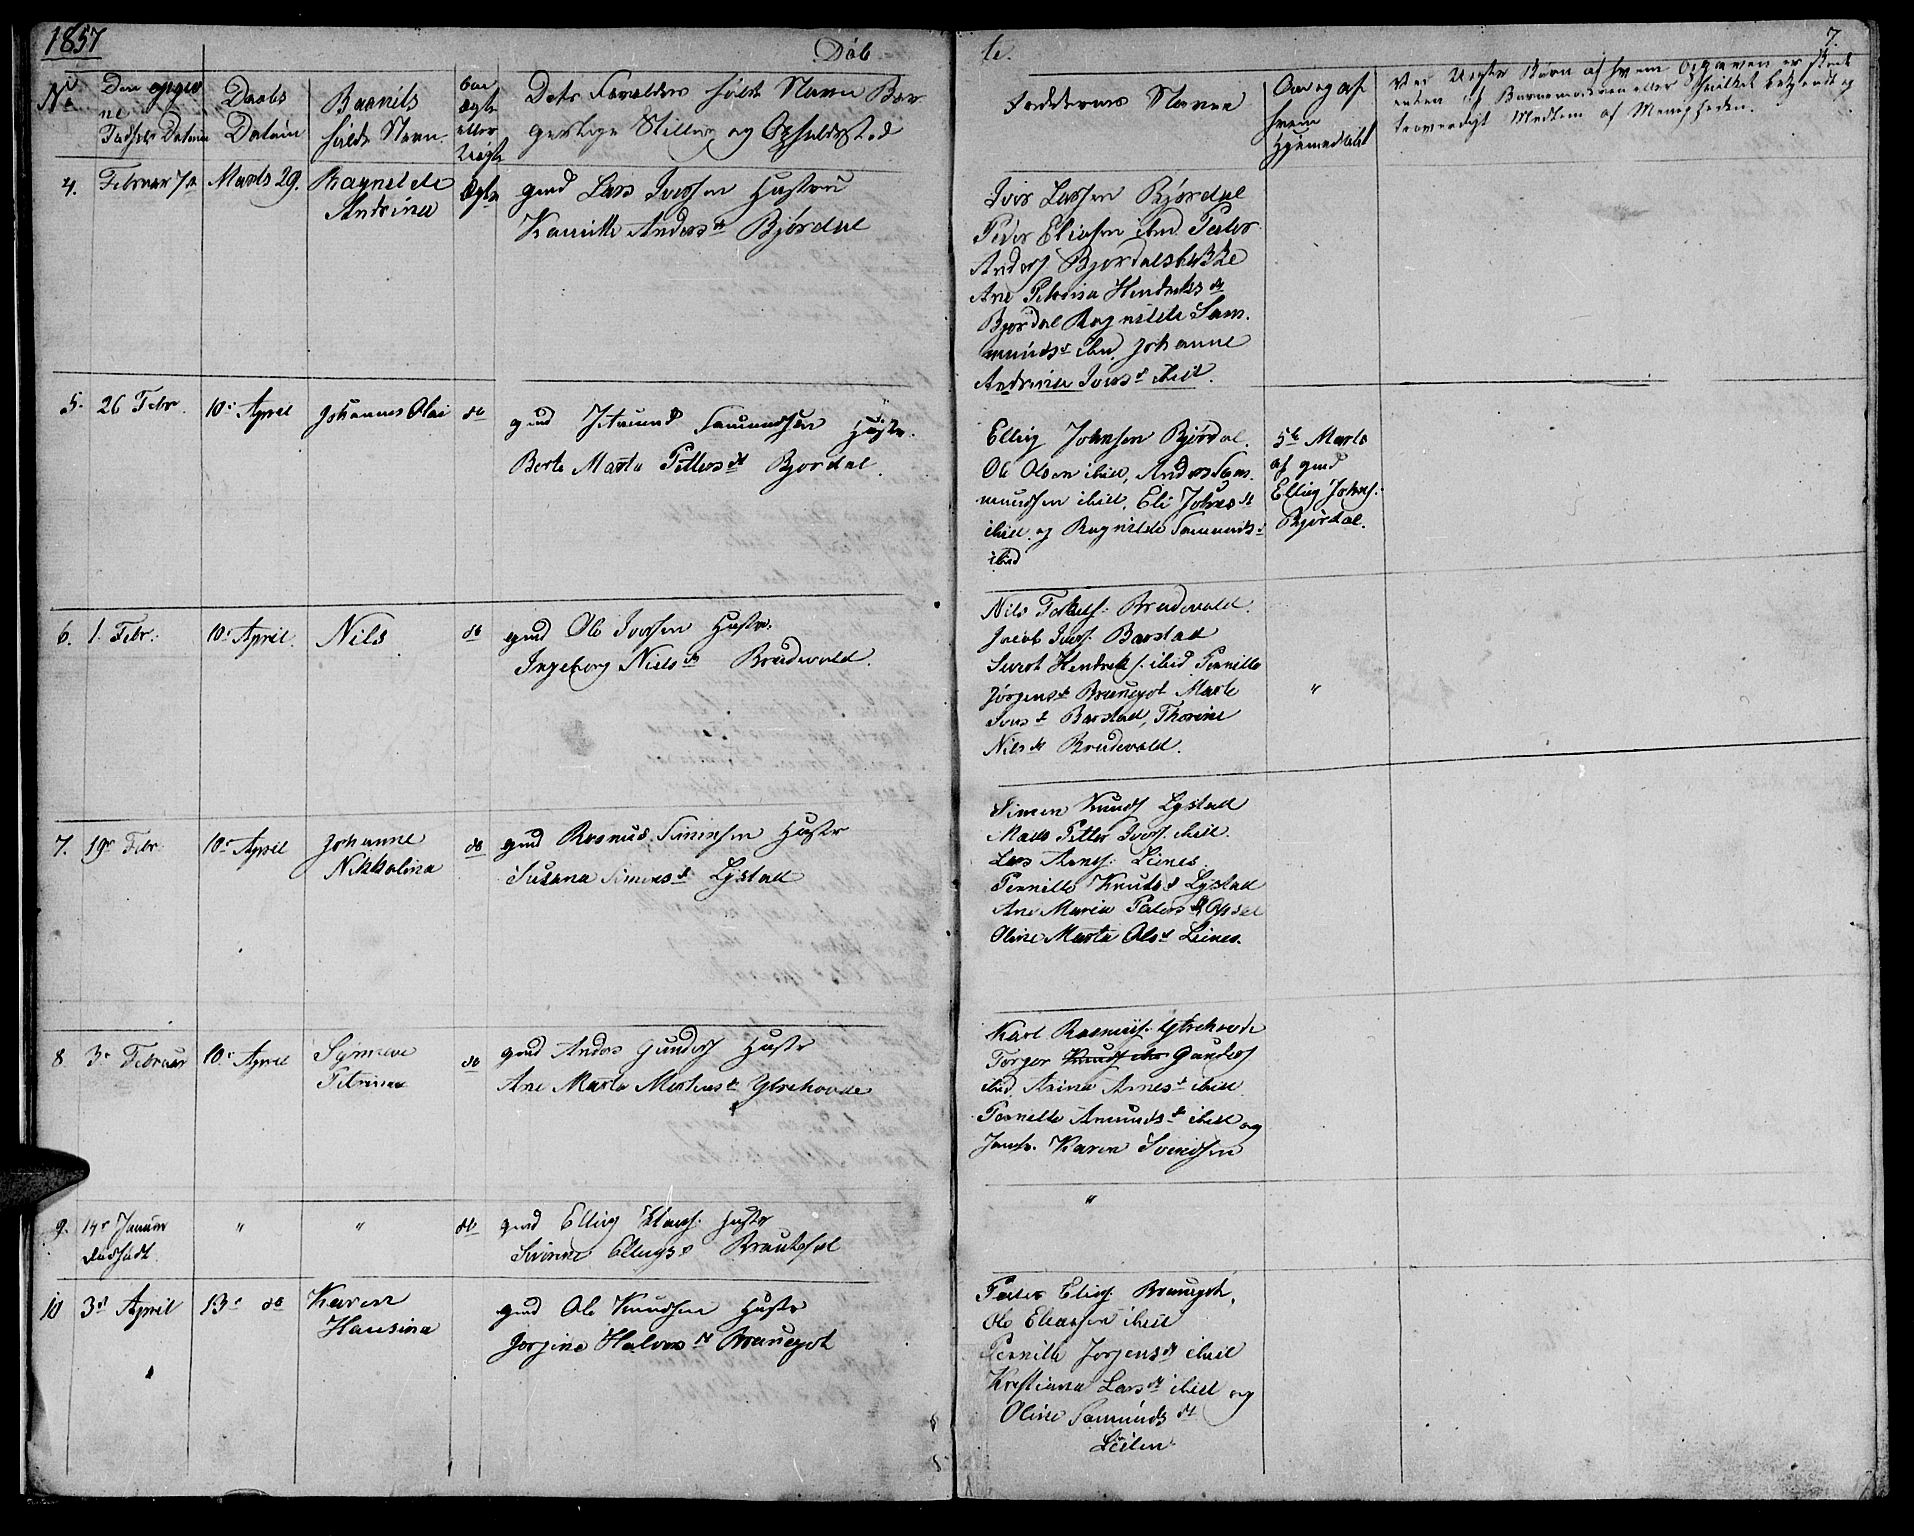 1857
Døb
te.
7.
No
Den opgivne Fødsels Datum
Daabs Datum
Barnets fulde Navn
Om Ægte eller Uægte
Dets Forældres fulde Navn Borgerlige Stilling og Opholdssted
Faddernes Navne
Om og af hvem Hjemmedøbt
Ved Uægte Børn af hvem Opgaven er skeet
enten af Barnemoderen eller hvilket bekjendt og
troværdigt Medlem af Menigheden.
4. Februar 7de Marts 29. Ragnilde Ægte gmd Lars Iversen Hustru
Andrina
Pernille Andersd Bjørdal
Iver Larsen Bjørdal
Peder Eliasen ibd Peter
Anders Bjordalsbakke
Ane Petrina Hendriksd
Bjørdal Ragnilde Sam
mundsd ibd. Johanne
Andrina Iversd ibid.
5. 26 Febr. 10de April Johannes Olai do gmd Amund Samundsen Hustr.
Berte Marta Petersd Bjørdal.
Elling Johnsen Bjørdal.
Ole Olsen ibid, Anders Sam
mundsen ibid, Eli Johnsd
ibid og Ragnilde Samundsd
ibid
5te Marts
af gmd
Elling Johns:
Bjørdal.
6. 1. Febr. 10de April. Nils do gmd Ole Iversen Hustr.
Ingeborg Nielsd Brudevold.
Nils Brudevold.
Jacob Ivers. Barstad
Sivert Hendriks. ibid Pernille
Jørgensd Braungot Marte
Iversd Barstad, Thorine
Nilsd Brudevold.
"
7. 19de Febr. 10de April Johanne do gmd Rasmus Simensen Hustr
Nikkoline
Susana Simensd Lystad
Simen Knuds Lystad
Mads Petter Ivers. ibid.
Lars Arnes. Leines.
Pernille Knutsd Lystad
Ane Maria Petersd Opsal
Oline Marta Olsd Leines.
8 3de Februar 10de April Synneve do gmd Anders Gunders Hustr
Petrina
Ane Marta Mortensd Ytrehovde
Karl Rasmus. Ytrehovde
Torger Gunders
ibid, Arina Arnesd ibid
Pernille Amundsd ibid og
Jomfr. Karen Svendsen
9. 14de Januar " " do gmd Elling Klaus. Hustr
dødfødt.
Sivrine Ellingsd Brautesæt
"
10 3de April 13de do Karen gmd Ole Knudsen Hustr
Hansina
Jorgine Halvorsd Braungot
Peter Elias. Braungot,
Ole Eliassen ibid
Pernille Jørgensd ibid
Kristiana Larsd ibid og
Oline Samundsd
Leiten